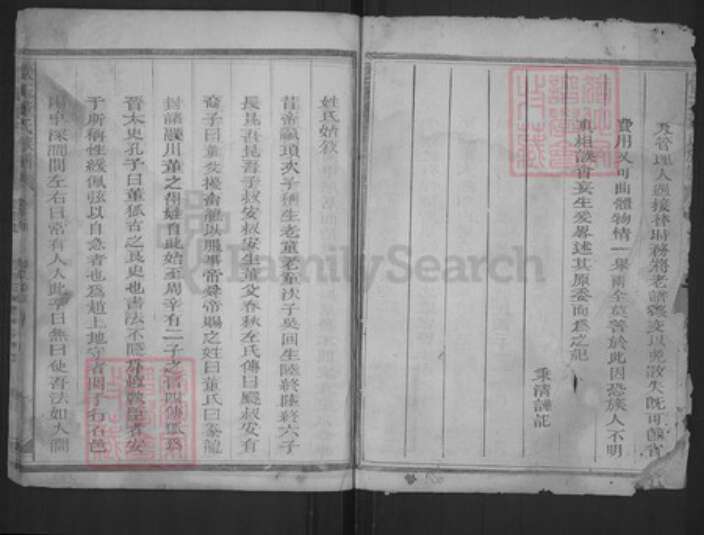 及管理人遇接替時務將老譜發交以免散失既可節省
費用又可曲體物情一舉兩全莫善於此因恐族人不明
真相誤會妄生爰畧述其原委而為之記
秉清謹記
姓氏始敘
昔帝顓頊次子稱生老童老童次子吳回生陸終陸終六子
長昆吾昆吾子叔安叔安生董父春秋左氏傳曰颺叔安有
裔子曰董父擾畜龍以服事帝舜帝賜之姓曰董氏曰豢龍
封諸鬷川董之得姓自此始至周辛有二子之晉四傳狐為
晉太史孔子曰董狐古之良史也書法不隱為趙鞅臣者安
于所稱性緩佩弦以自急者也為趙上地守者閼于石邑
澗中深間問左右曰常有人入此乎曰無曰使吾法如入澗
FamilySearch